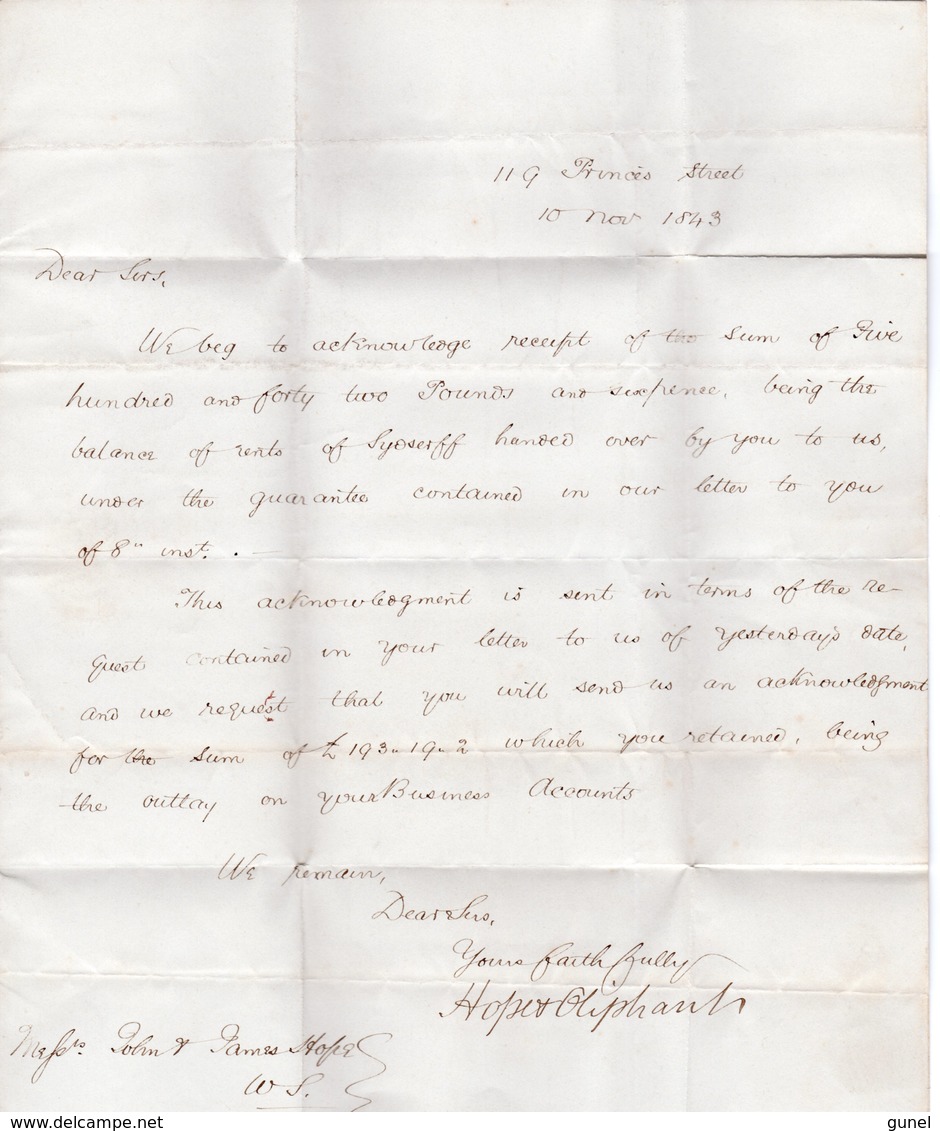 119 Princes Street
10 Nov 1843
Dear Sirs,
We beg to acknowledge receipt of the sum of Five
hundred and forty two Pounds and sixpence, being the
balance of rents of Sydserff handed over by you to us,
under the guarantee contained in our letter to you
of 8" inst. . —
This acknowledgment is sent in terms of the re-
quest contained in your letter to us of yesterday's date,
and we request that you will send us an acknowledgment
for the sum of £193"19"2 which you retained, being
the outlay on your Business Accounts
We remain,
Dear Sirs,
Yours faithfully
Hope & Oliphant
Messrs John & James Hope
W S.
gunel